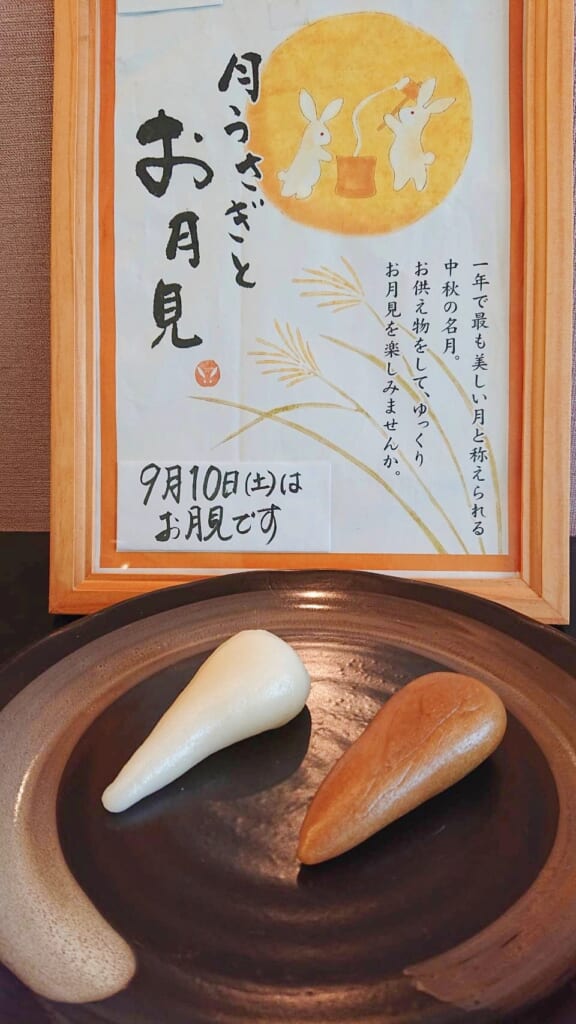 月うさぎと
お月見
一年で最も美しい月と称えられる
中秋の名月。
お供え物をして、ゆっくり
お月見を楽しみませんか。
9月10日(土)は
お月見です